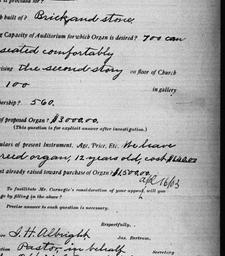 built of? Brick and stone.
ng Capacity of Auditorium for which Organ is desired? 700 can
seated comfortably
rising the second story on floor of Church
100 in gallery
bership? 560.
of proposed Organ? $3000.00.
(This question is for explicit answer after investigation.)
ulars of present Instrument. Age, Price, Etc. We have
reed organ, 12 years old, cost
nt already raised toward purchase of Organ? $1500.00
apl 16/03
To facilitate Mr. Carnegie's consideration of your appeal, will you
ge by filling in the above?
Precise answer to each question is necessary.
Respectfully,
Jas. Bertram,
J. H. Albright
Secretary
Pastor, in behalf